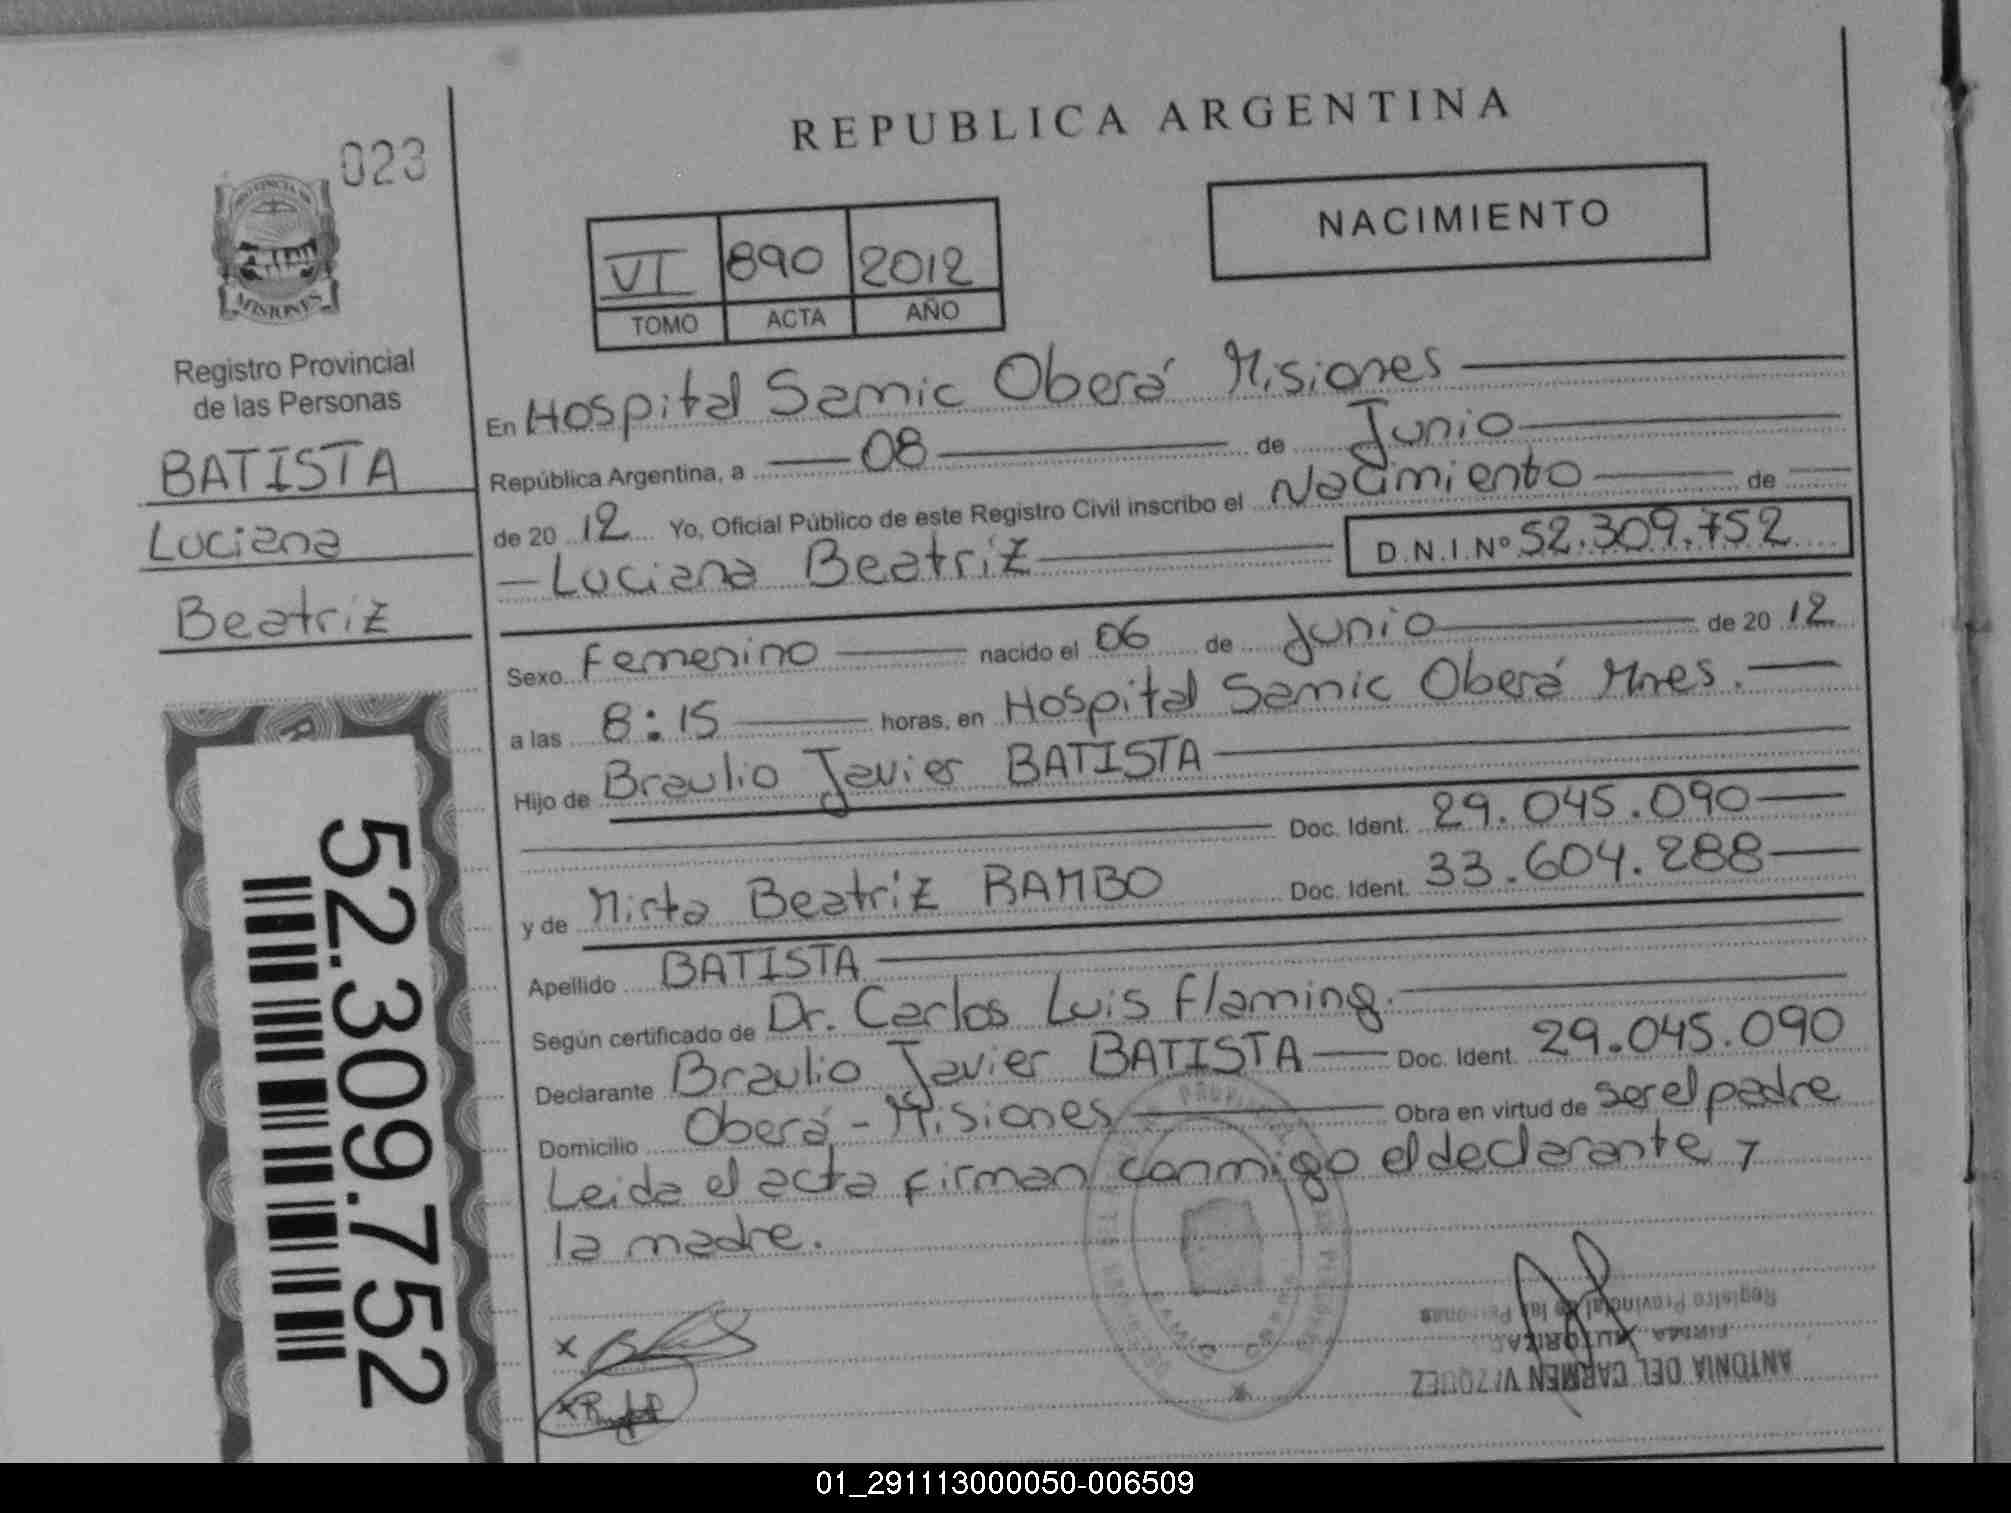 REPUBLICA ARGENTINA
023
NACIMIENTO
VI 890 2012
TOMO ACTA AÑO
MISIONES
Registro Provincial
de las Personas
BATISTA
Luciana
Beatriz
En Hospital Samic Oberá Misiones
República Argentina, a 08 de Junio
de 20 12 Yo, Oficial Público de este Registro Civil inscribo el Nacimiento de
Luciana Beatriz D.N.I.Nº 52.309.752
Sexo Femenino nacido el 06 de Junio de 20 12
a las 8:15 horas, en Hospital Samic Oberá Mnes.
Hijo de Braulio Javier BATISTA
Doc. Ident. 29.045.090
y de Mirta Beatriz RAMBO Doc. Ident. 33.604.288
Apellido BATISTA
Según certificado de Dr. Carlos Luis Flaming.
Declarante Braulio Javier BATISTA Doc. Ident. 29.045.090
Domicilio Oberá - Misiones Obra en virtud de ser el padre
Leida el acta firman conmigo el declarante y
la madre.
52.309.752
ANTONIA DEL CARMEN VAZQUEZ
FIRMA AUTORIZADA
Registro Provincial de las Personas
01_291113000050-006509